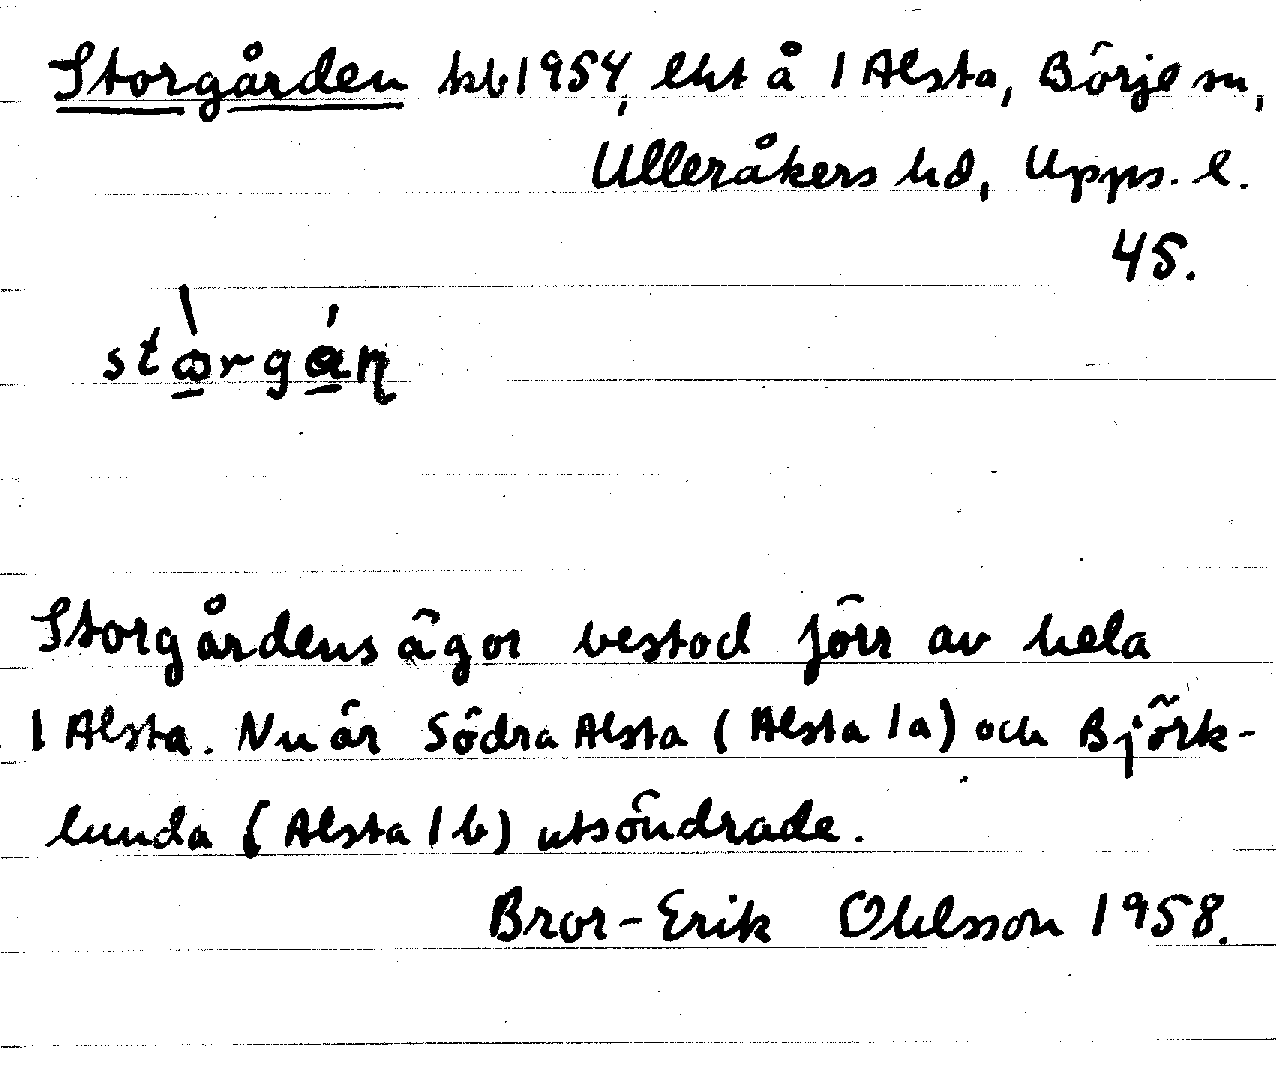 Storgården kb 1954, lht å 1 Alsta, Börje sn,
Ulleråkers hd, Upps. l.
45.
Storgårdens ägor bestod förr av hela
1 Alsta. Nu är Södra Alsta (Alsta 1a) och Björk-
lunda (Alsta 1b) utsöndrade.
Bror-Erik Ohlsson 1958.